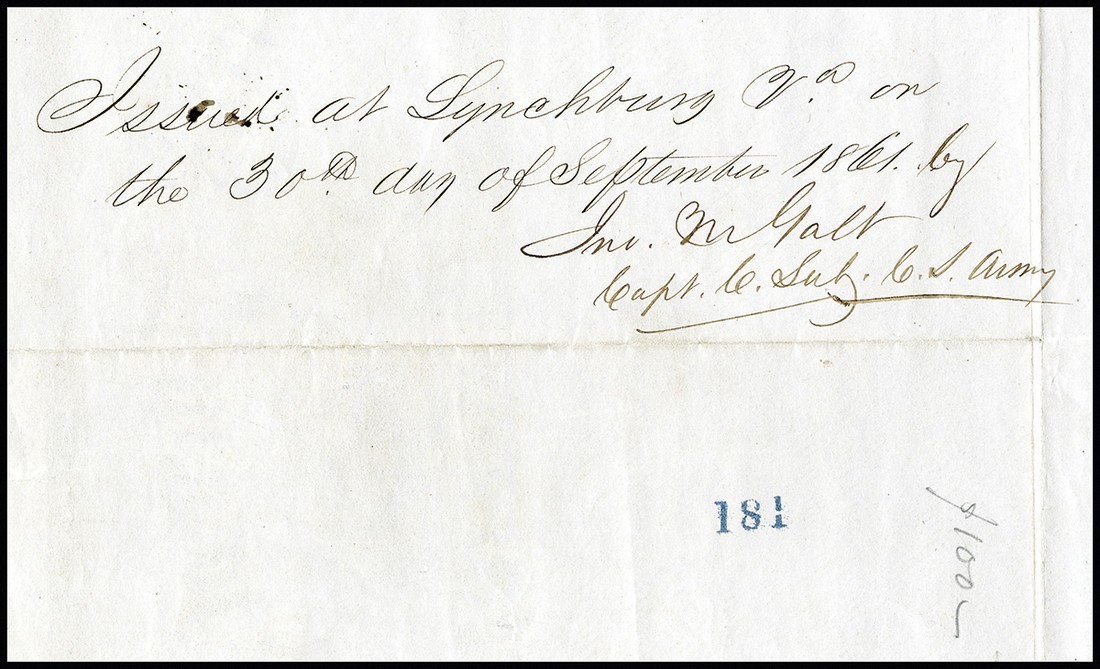 Issued at Lynchburg Va on
the 30th day of September 1861. by
Jno. M Galt
Capt. C. Sub. C. S. Army
181
$100-